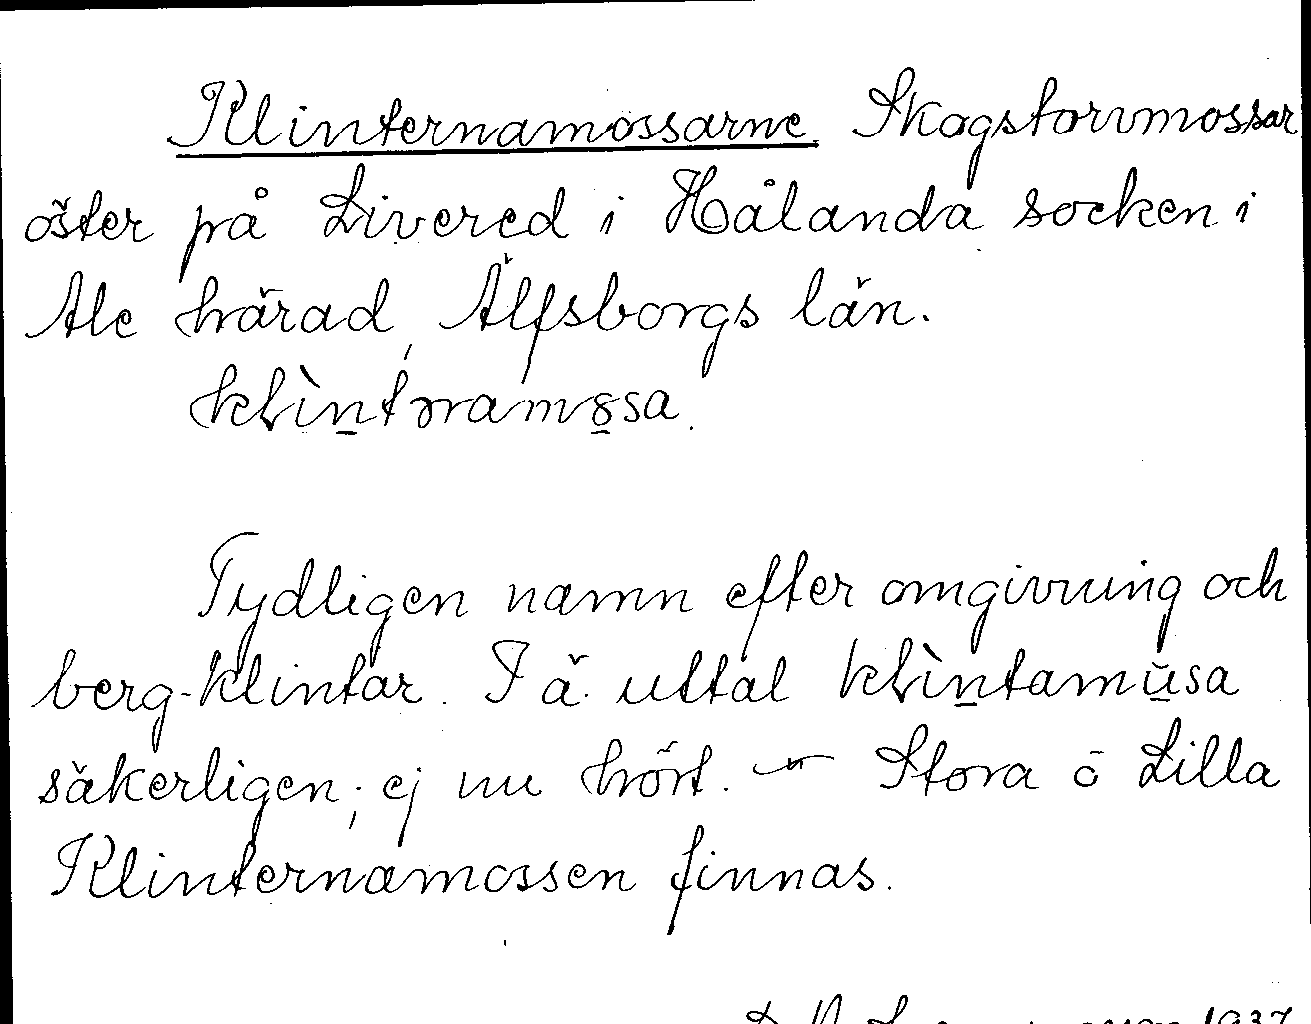 Klinternamossarne. Skogstorvmossar
öster på Livered i Hålanda socken i
Ale härad, Älfsborgs län.
klìntɔramosa.
Tydligen namn efter omgivning och
berg-klintar. I ä. uttal klìntamusa
säkerligen; ej nu hört. — Stora o Lilla
Klinternamossen finnas.
1937